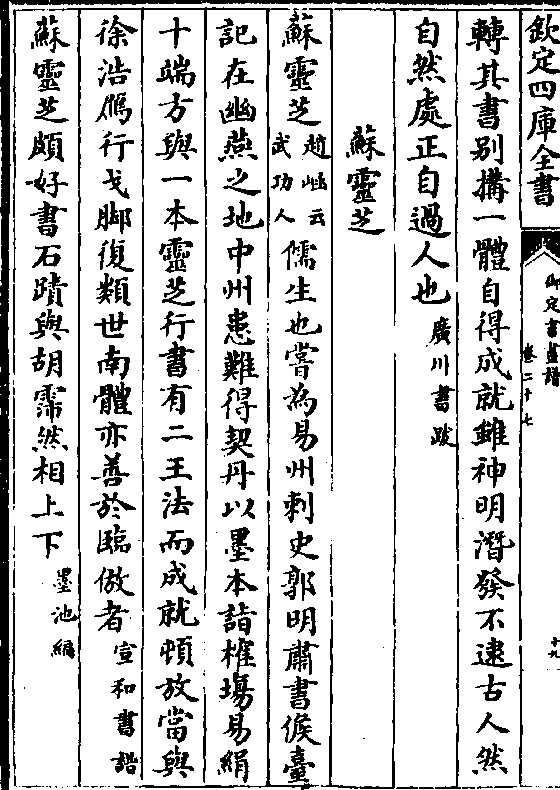 欽定四庫全書
御定書畫譜
卷二十七
十九
轉其書别搆一體自得成就雖神明潛發不逮古人然
自然處正自過人也廣川書跋
蘇靈芝
蘇靈芝趙崡云武功人儒生也嘗為易州刺史郭明肅書候臺
記在幽燕之地中州患難得契丹以墨本詣榷場易絹
十端方與一本靈芝行書有二王法而成就頓放當與
徐浩鴈行戈脚復類世南體亦善於臨倣者宣和書譜
蘇靈芝頗好書石蹟與胡霈然相上下墨池編